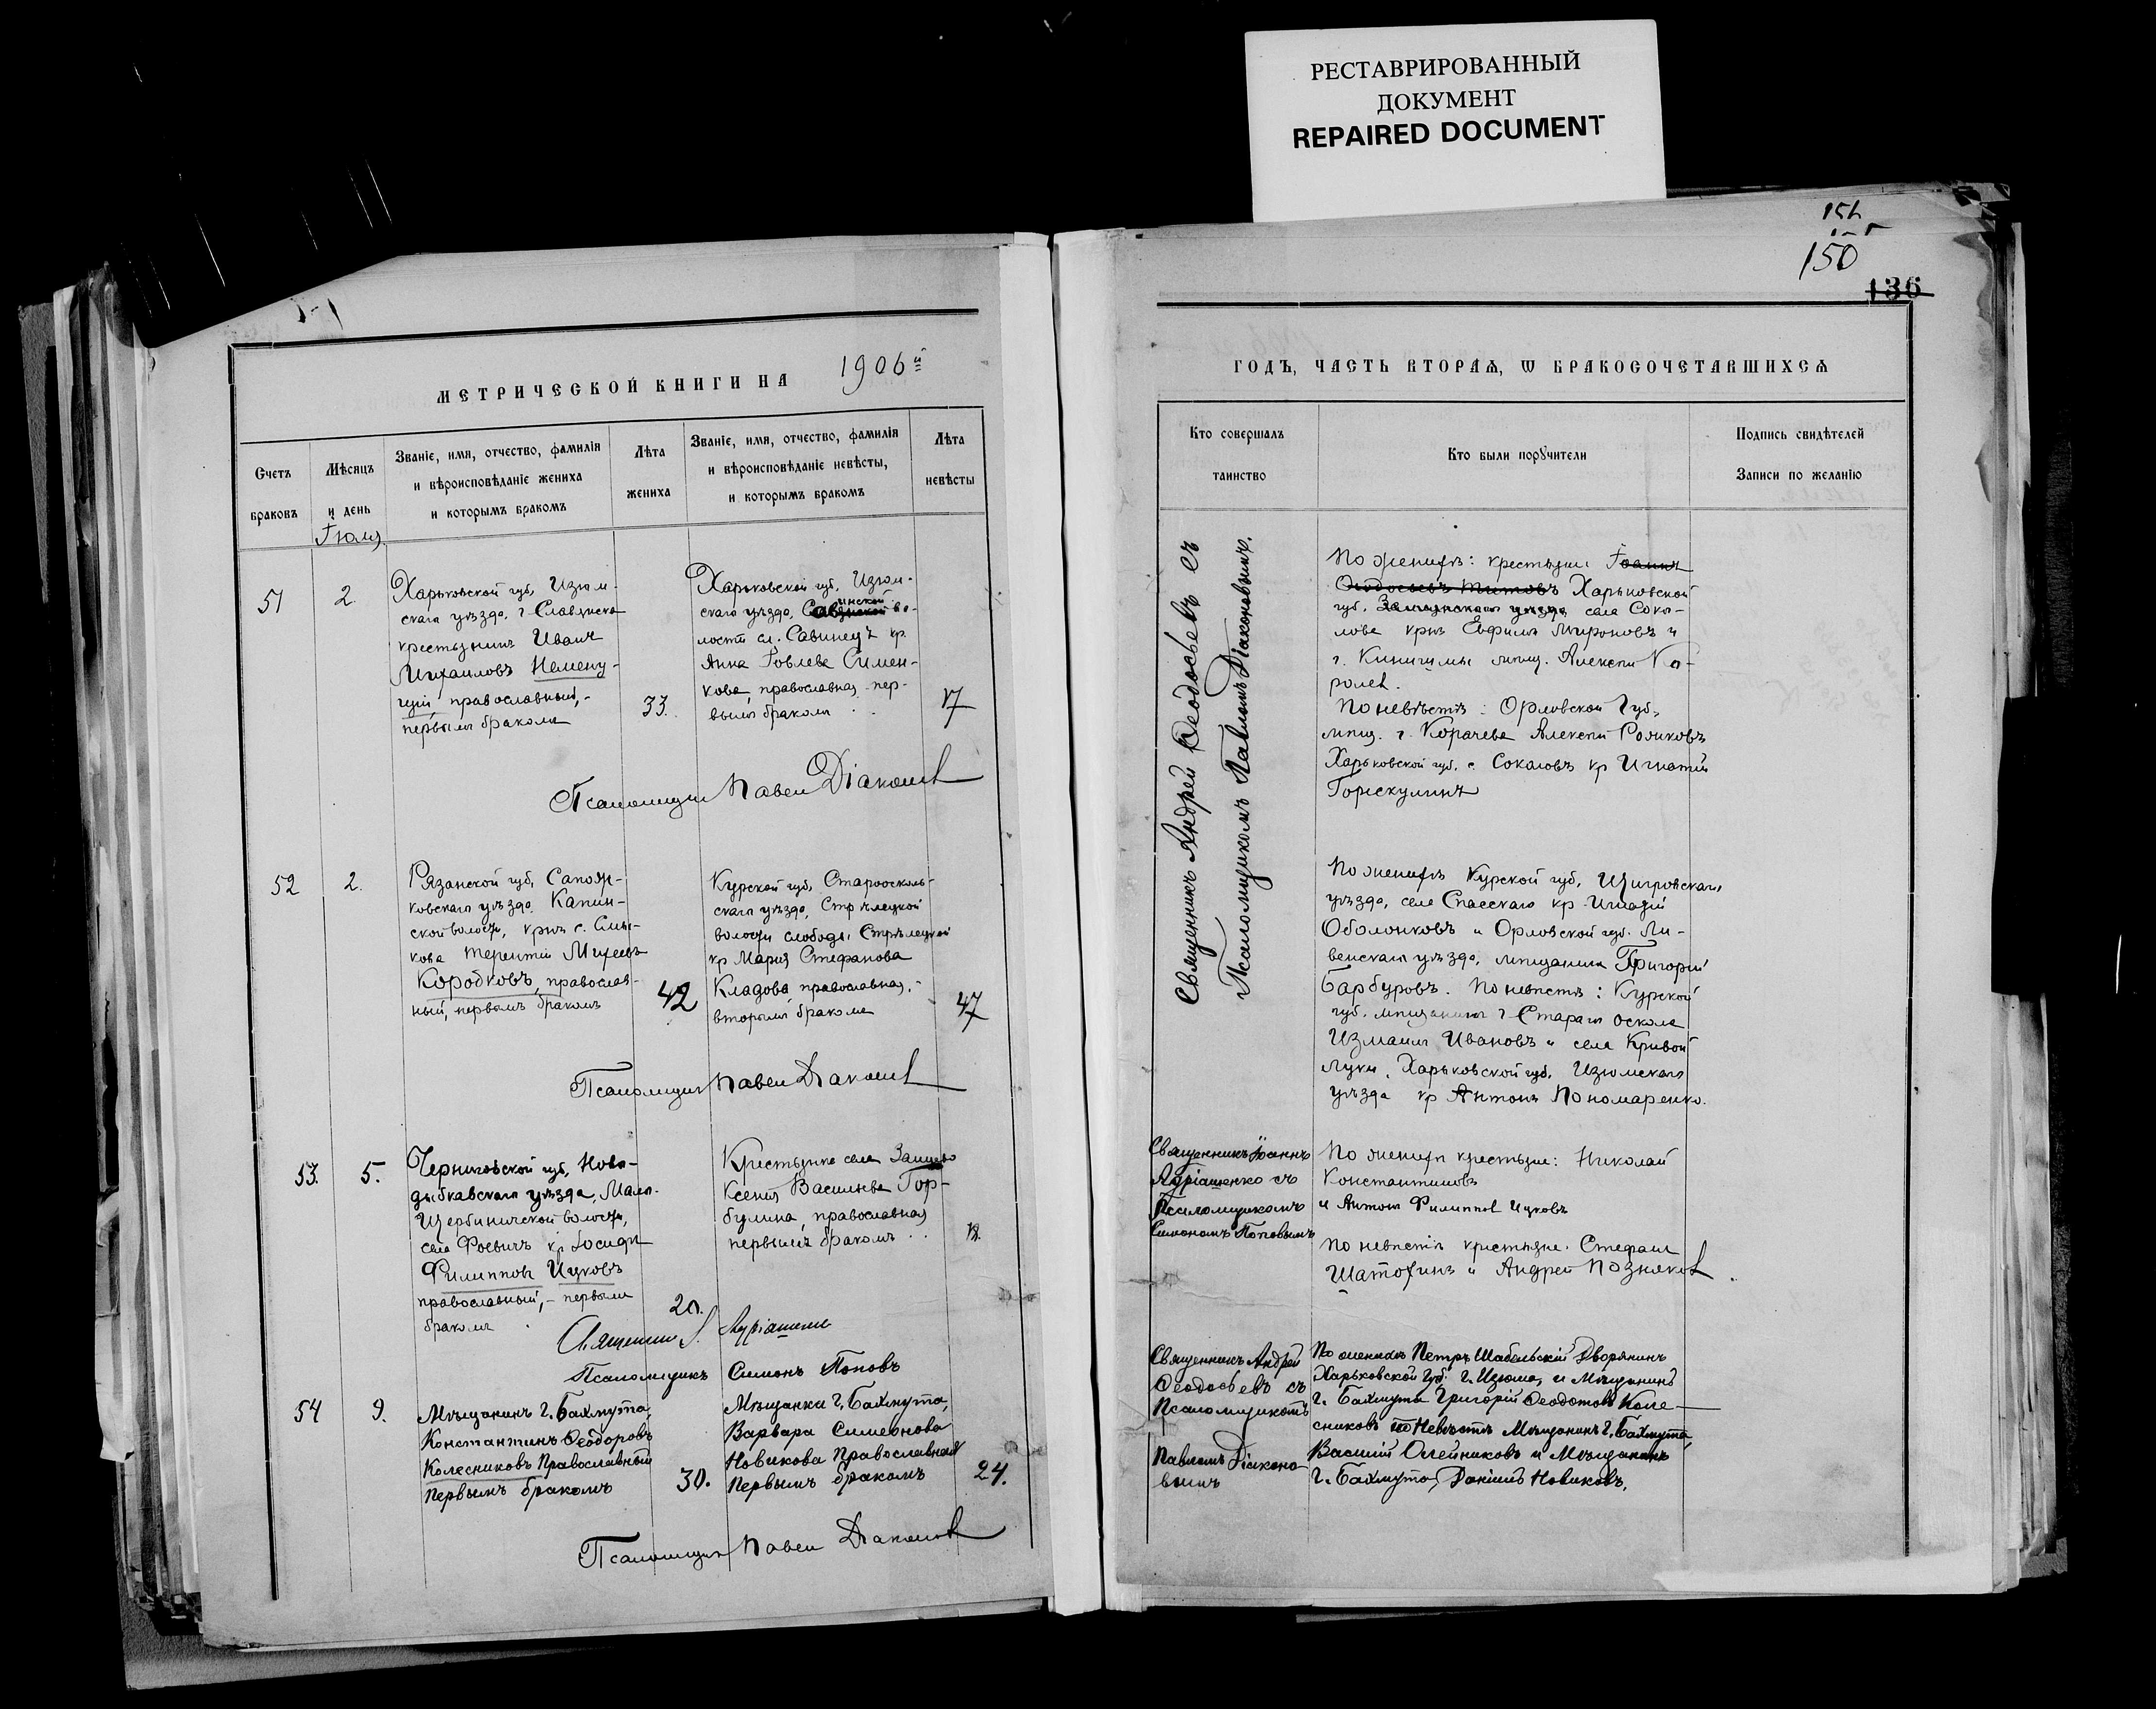 РЕСТАВРИРОВАННЫЙ
ДОКУМЕНТ
REPAIRED DOCUMENT
150
136
МЕТРИЧЕСКОЙ КНИГИ НА 1906й
Счетъ
браковъ
Мѣсяцъ
и день
Іюля
Званіе, имя, отчество, фамилія
и вѣроисповѣданіе жениха
и которымъ бракомъ
Лѣта
жениха
Званіе, имя, отчество, фамилія
и вѣроисповѣданіе невѣсты,
и которымъ бракомъ
Лѣта
невѣсты
51
2
Харьковской губ. Изюм-
скаго уѣзда, г. Славянска
крестьянинъ Иванъ
Михаиловъ Немену-
щій, православный,-
первымъ бракомъ
33.
Харьковской губ. Изюм-
скаго уѣзда, Савинской во-
лости сл. Савинецъ кр.
Анна Іовлева Симен-
кова, православная, пер-
вымъ бракомъ
17
Псаломщикъ Павелъ Діаконовъ
52
2.
Рязанской губ, Сапож-
ковскаго уѣзда, Капин-
ской волости, крнъ с.
кова Терентій Михеевъ
Коробковъ, православ-
ный, первымъ бракомъ
42
Курской губ, Старооскль-
скаго уѣзда, Стрѣлецкой
волости слободы Стрѣлецкой
кр Марія Стефанова
Кладова православная,-
вторымъ бракомъ
47
Псаломщикъ Павелъ Діаконовъ
53.
5.
Черниговской губ, Ново-
зыбковскаго уѣзда, Мало-
Щербиничской волости,
села Фоевичъ кр Іосифъ
Филипповъ Ицковъ
православный,- первымъ
бракомъ
20.
Крестьянка села Зайцево
Ксенія Васильева Гор-
булина, православная
первымъ бракомъ
18.
Священникъ І. Ауріашенко
Псаломщикъ Симонъ Поповъ
54
9.
Мѣщанинъ г. Бахмута,
Константинъ Ѳеодоровъ
Колесниковъ Православный
Первымъ бракомъ
30.
Мѣщанка г. Бахмута,
Варвара Симеонова
Новикова Православная
Первымъ бракомъ
24.
Псаломщикъ Павелъ Діаконовъ
ГОДЪ, ЧАСТЬ ВТОРАЯ, Ѡ БРАКОСОЧЕТАВШИХСЯ
Кто совершалъ
таинство
Кто были порꙋчители
Подпись свидѣтелей
Записи по желанію
Священникъ Андрей Ѳеодосьевъ съ
Псаломщикомъ Павломъ Діаконовымъ.
По женихѣ: крестьяне Іоаннъ
Ѳеодосьевъ Титовъ Харьковской
губ. уѣзда села Соко-
лова крнъ Евфимъ Мироновъ и
г. мѣщ. Алексѣй Ко-
ролевъ.
По невѣстѣ: Орловской Губ.
мѣщ. г. Корачева Алексѣй
Харьковской губ. с. кр Игнатій
52
По женихѣ Курской губ. Щигровскаго
уѣзда, села Спасскаго кр
Оболонковъ и Орловской губ. Ли-
венскаго уѣзда, мѣщанинъ Григорій
Барбуровъ. По невѣстѣ: Курской
губ. мѣщанинъ г Стараго Оскола
Измаилъ Ивановъ и села Кривой
Луки, Харьковской губ, Изюмскаго
уѣзда кр Антонъ Пономаренко.
Священникъ Іоаннъ
Ауріашенко съ
Псаломщикомъ
Симономъ Поповымъ
По женихѣ крестьяне: Николай
Константиновъ
и Антонъ Филипповъ Ицковъ
По невѣстѣ крестьяне. Стефанъ
Шатохинъ и Андрей Позняковъ.
Священникъ Андрей
Ѳеодосьевъ съ
Псаломщикомъ
Павломъ Діаконо-
вымъ
По женихѣ Петръ Шабельскій Дворянинъ
Харьковской Губ. г. Изюма, и Мѣщанинъ
г. Бахмута Григорій Ѳеодотовъ Коле-
сниковъ по Невѣстѣ Мѣщанинъ г. Бахмута,
Василій Олейниковъ и Мѣщанинъ
г. Бахмута, Новиковъ.